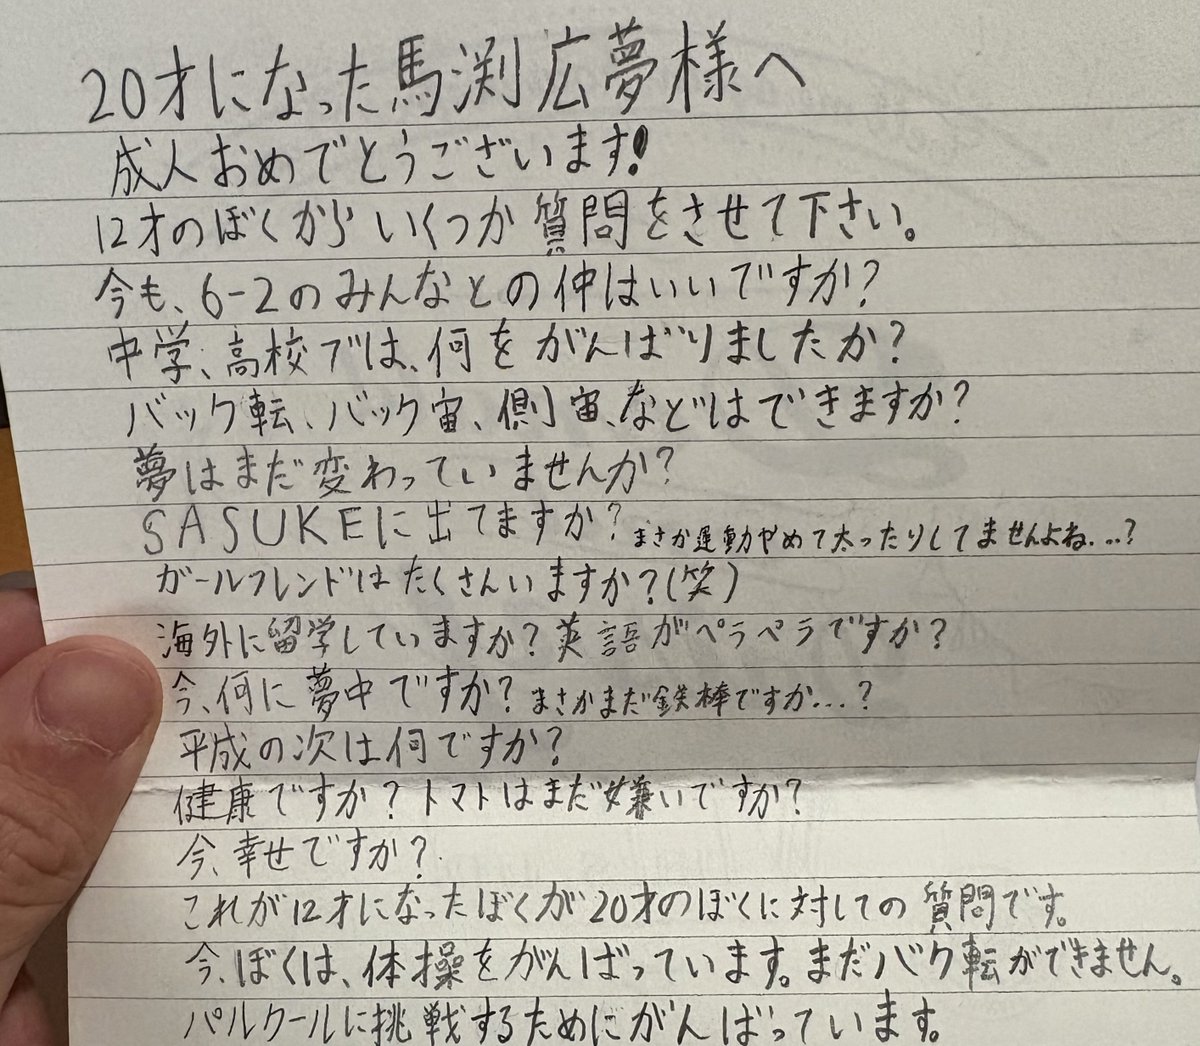 20才になった馬渕広夢様へ
成人おめでとうございます!
12才のぼくからいくつか質問をさせて下さい。
今も、6-2のみんなとの仲はいいですか?
中学、高校では、何をがんばりましたか?
バック転、バック宙、側宙、などはできますか?
夢はまだ変わっていませんか?
SASUKEに出てますか? まさか運動やめて太ったりしてませんよね...?
ガールフレンドはたくさんいますか?(笑)
海外に留学していますか?英語がペラペラですか?
今、何に夢中ですか? まさかまだ鉄棒ですか...?
平成の次は何ですか?
健康ですか?トマトはまだ嫌いですか?
今、幸せですか?
これが12才になったぼくが20才のぼくに対しての質問です。
今、ぼくは、体操をがんばっています。まだバク転ができません。
パルクールに挑戦するためにがんばっています。